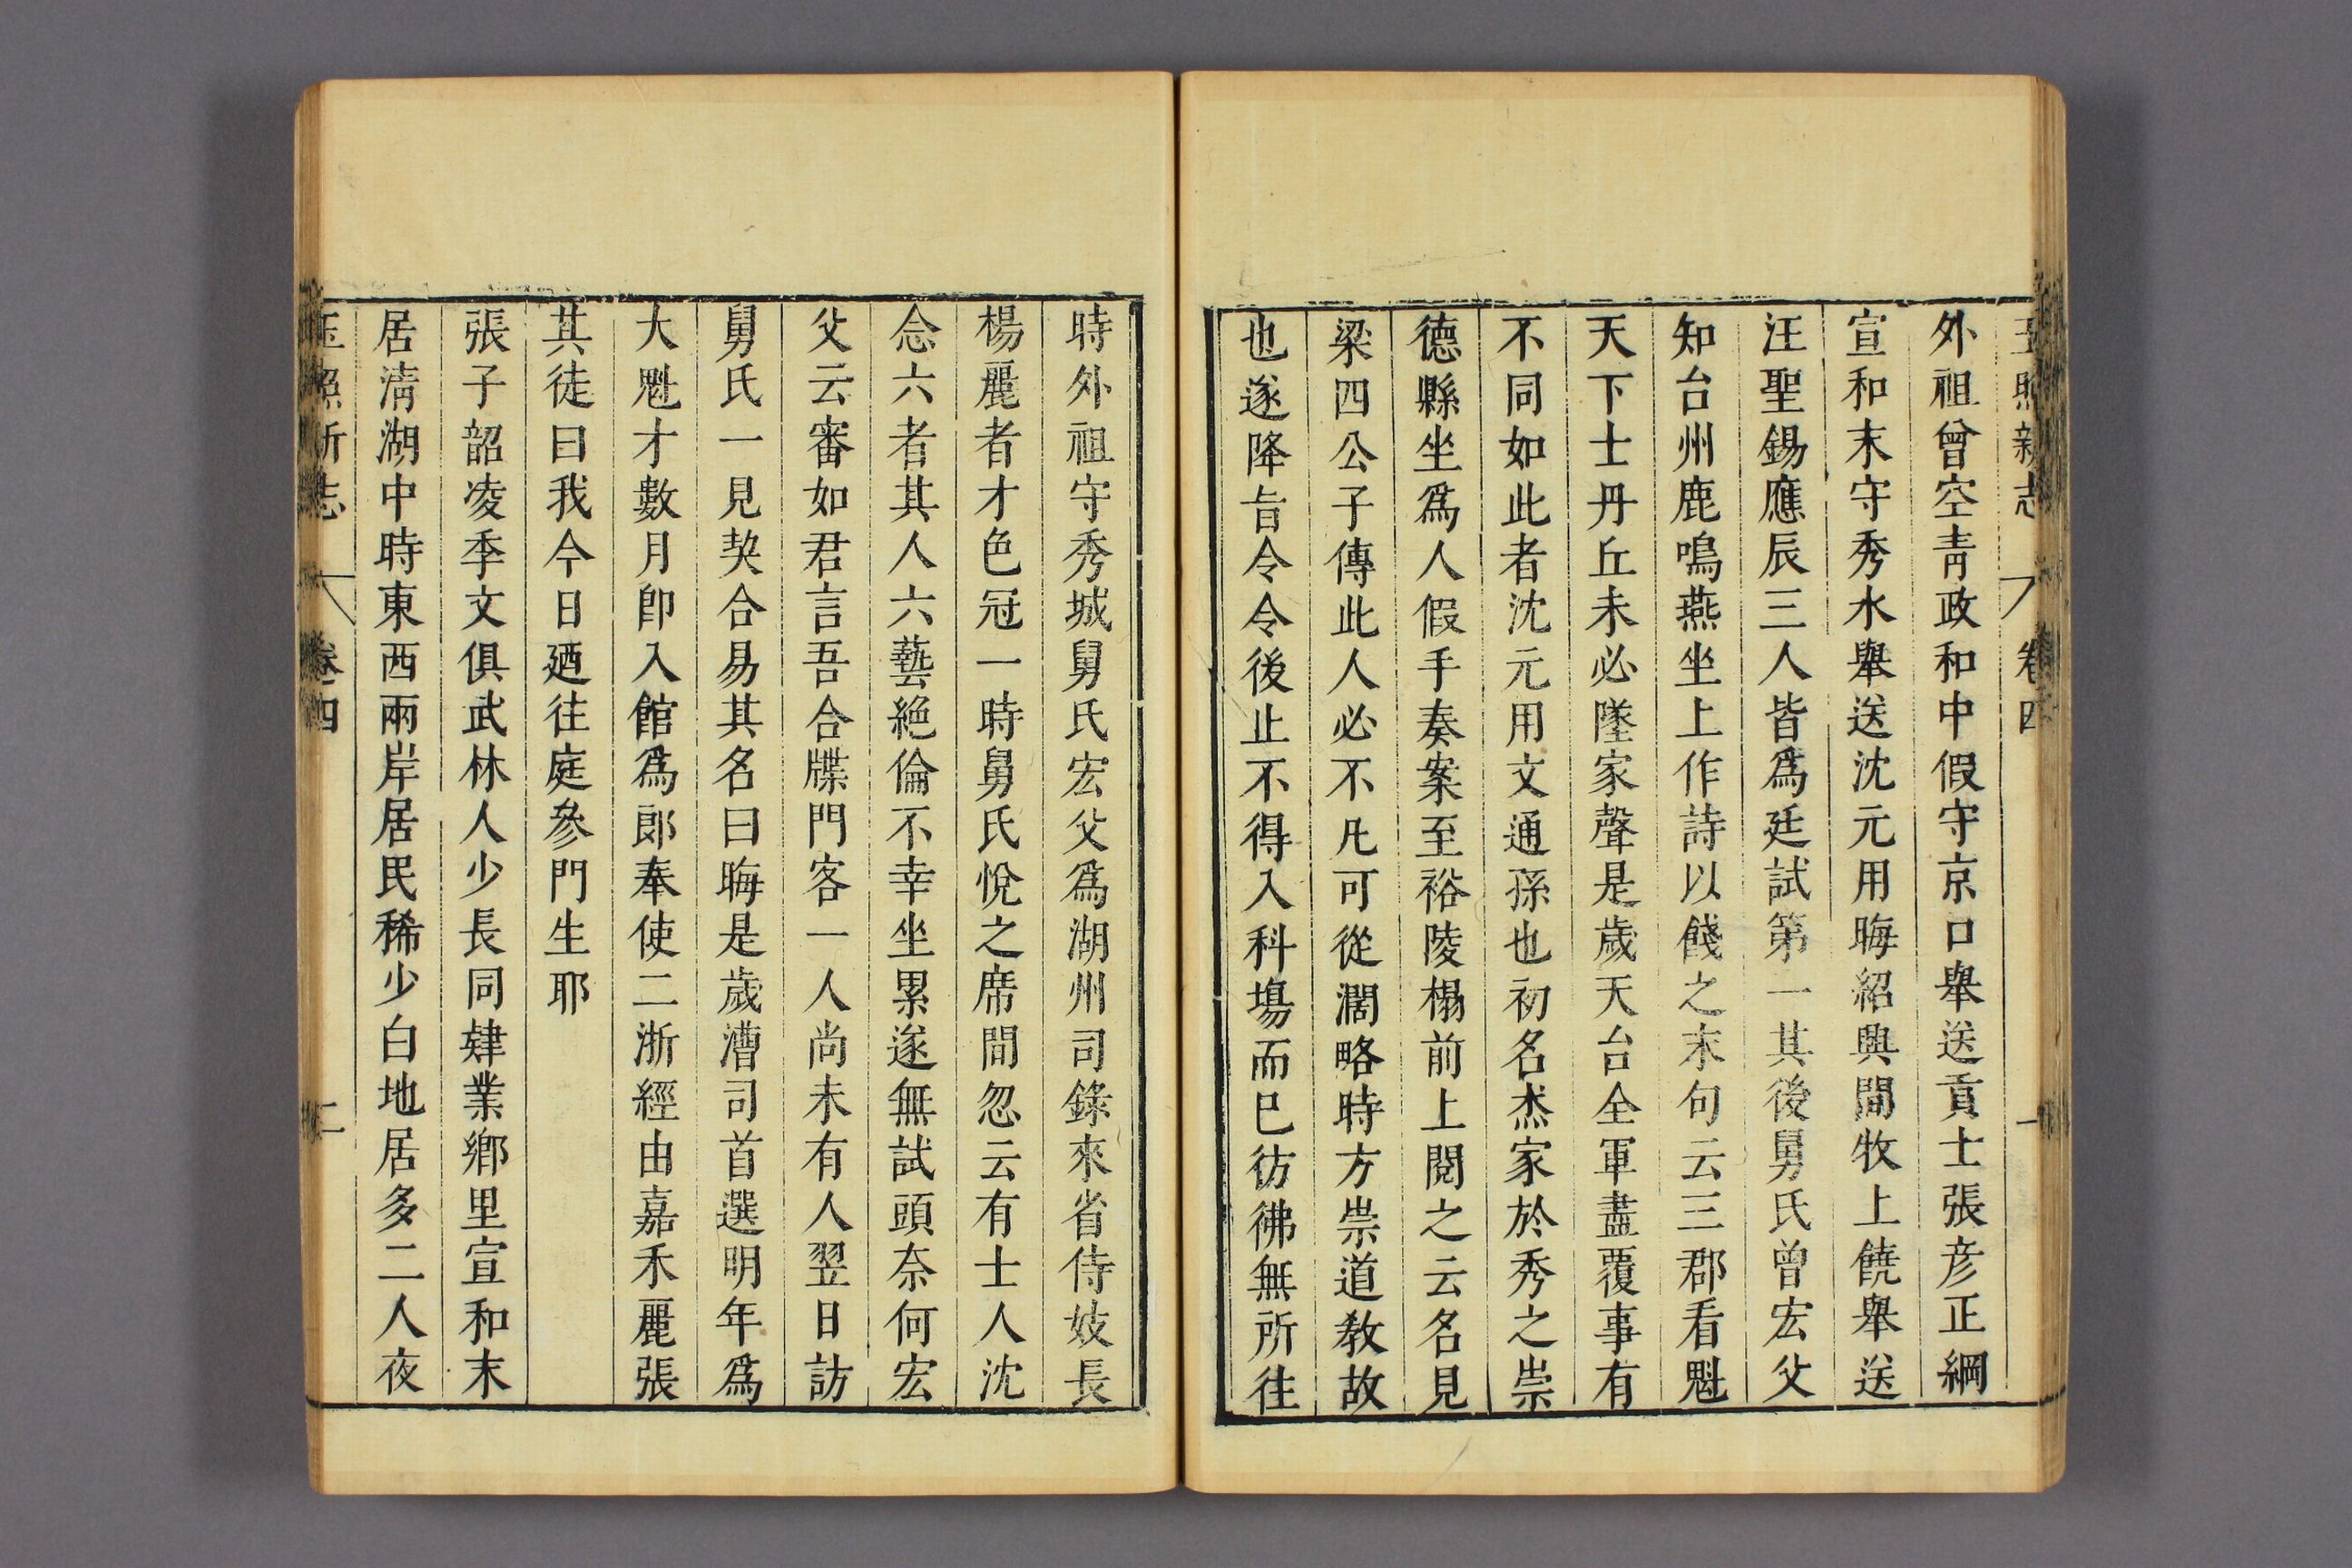 玉照新志 卷四 一
外祖曾空青政和中假守京口舉送貢士張彦正綱
宣和末守秀水舉送沈元用晦紹興間牧上饒舉送
汪聖錫應辰三人皆爲廷試第一其後舅氏曾宏父
知台州鹿鳴燕坐上作詩以餞之末句云三郡看魁
天下士丹丘未必墜家聲是歲天台全軍盡覆事有
不同如此者沈元用文通孫也初名杰家於秀之崇
德縣坐爲人假手奏案至裕陵榻前上閱之云名見
梁四公子傳此人必不凡可從濶略時方崇道教故
也遂降旨令今後止不得入科塲而已彷彿無所往
時外祖守秀城舅氏宏父爲湖州司錄來省侍妓長
楊麗者才色冠一時舅氏悅之席間忽云有士人沈
念六者其人六藝絶倫不幸坐累遂無試頭奈何宏
父云審如君言吾合牒門客一人尚未有人翌日訪
舅氏一見契合易其名曰晦是歲漕司首選明年爲
大魁才數月卽入館爲郎奉使二浙經由嘉禾麗張
其徒曰我今日廼往庭參門生耶
張子韶凌季文俱武林人少長同肄業鄉里宣和末
居清湖中時東西兩岸居民稀少白地居多二人夜
玉照新志 卷四 二